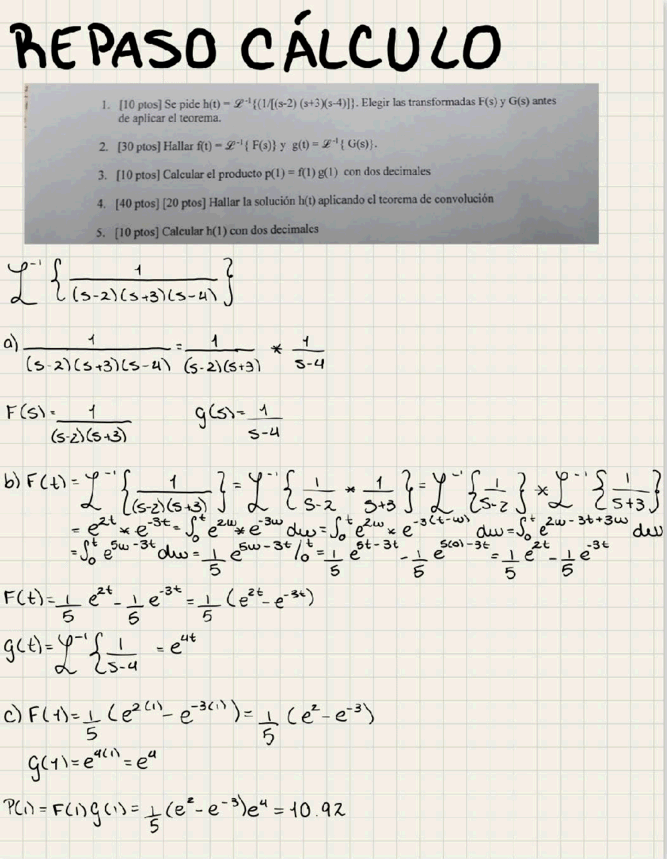 REPASO CÁLCULO
1. [10 ptos] Se pide h(t) = ℒ⁻¹{(1/[(s-2) (s+3)(s-4)]}. Elegir las transformadas F(s) y G(s) antes
de aplicar el teorema.
2. [30 ptos] Hallar f(t) = ℒ⁻¹{ F(s)} y g(t) = ℒ⁻¹{ G(s)}.
3. [10 ptos] Calcular el producto p(1) = f(1) g(1) con dos decimales
4. [40 ptos] [20 ptos] Hallar la solución h(t) aplicando el teorema de convolución
5. [10 ptos] Calcular h(1) con dos decimales
ℒ⁻¹ { 1/((s-2)(s+3)(s-4)) }
a) 1/((s-2)(s+3)(s-4)) = 1/((s-2)(s+3)) * 1/(s-4)
F(s) = 1/((s-2)(s+3)) g(s) = 1/(s-4)
b) F(t) = ℒ⁻¹ { 1/((s-2)(s+3)) } = ℒ⁻¹ { 1/(s-2) * 1/(s+3) } = ℒ⁻¹ { 1/(s-2) } * ℒ⁻¹ { 1/(s+3) }
= e^(2t) * e^(-3t) = ∫₀ᵗ e^(2w) * e^(-3w) dw = ∫₀ᵗ e^(2w) * e^(-3(t-w)) dw = ∫₀ᵗ e^(2w-3t+3w) dw
= ∫₀ᵗ e^(5w-3t) dw = 1/5 e^(5w-3t) /₀ᵗ = 1/5 e^(5t-3t) - 1/5 e^(5(0)-3t) = 1/5 e^(2t) - 1/5 e^(-3t)
F(t) = 1/5 e^(2t) - 1/5 e^(-3t) = 1/5 (e^(2t) - e^(-3t))
g(t) = ℒ⁻¹ { 1/(s-4) = e^(4t)
c) F(1) = 1/5 (e^(2(1)) - e^(-3(1))) = 1/5 (e² - e⁻³)
g(1) = e^(4(1)) = e⁴
P(1) = F(1) g(1) = 1/5 (e² - e⁻³)e⁴ = 10.92